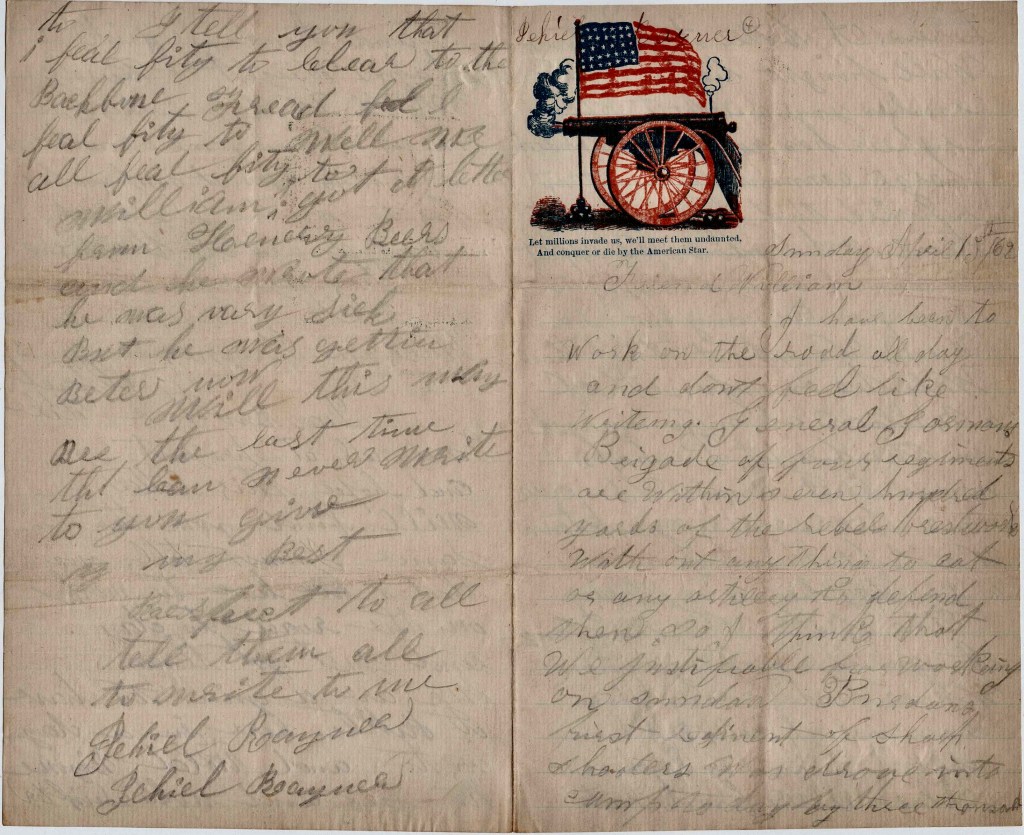 to I tell you that
i feal fity to clear to the
Backbone Thread I
feal fity to well we
all feal fity to
William got a letter
Beers
and he wrote that
he was vary sick
But he was gettin
Beter now
Will this may
Bee the last time
tht I can never write
to you give
my Best
Respect to all
tell them all
to write to me.
Jehiel Rayner
Jehiel Rayner
Jehiel
Let millions invade us, we'll meet them undaunted,
And conquer or die by the American Star.
Sunday April 13th /62
Friend William
I have been to
Work on the road all day
and dont feel like
Writeing. General Gormans
Brigade of four regiments
are Within seven hundred
yards of the rebel brestworks
With out any thing to eat
or any artilery to defend
them so I think that
We justifiable for working
on sunday Burdans
first regiment of sharp
shooters Was drove into
camp to day by three thousand